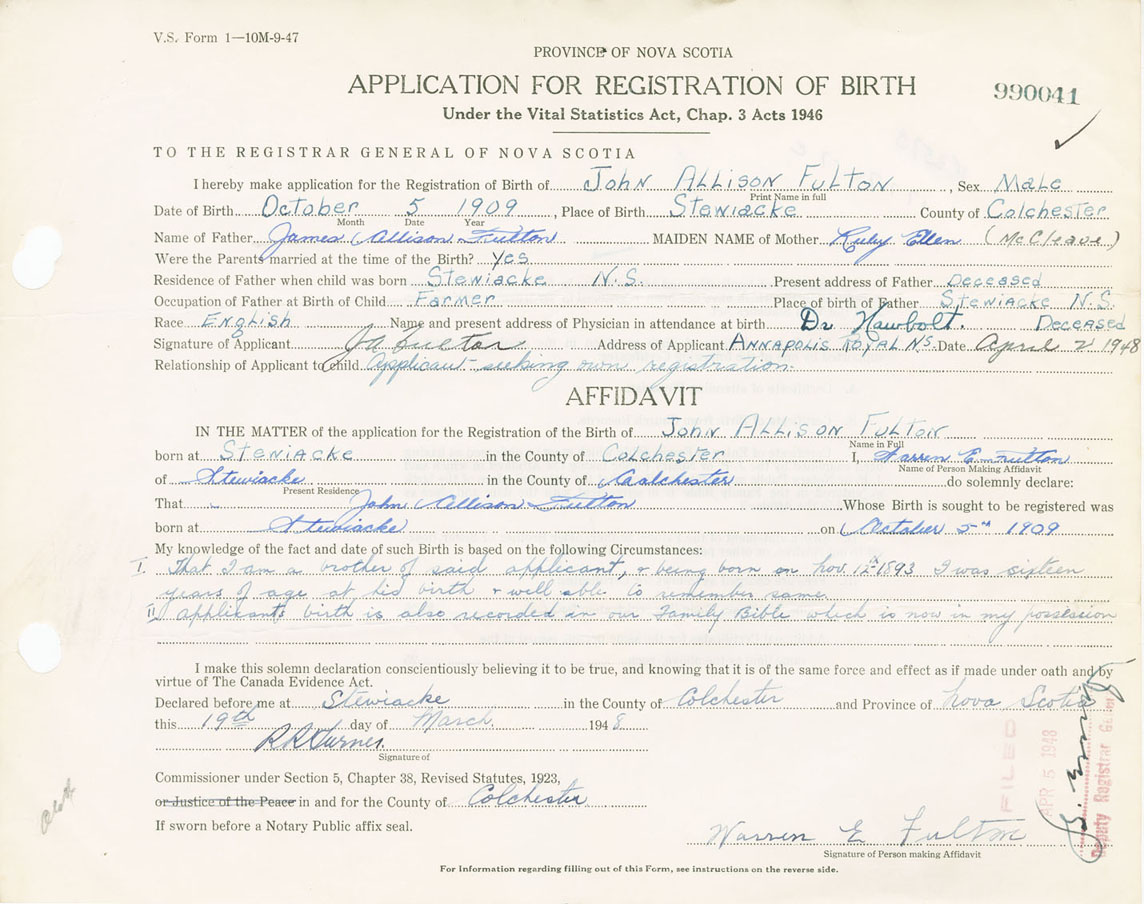 V.S. Form 1—10M-9-47
PROVINCE OF NOVA SCOTIA
APPLICATION FOR REGISTRATION OF BIRTH
990041
Under the Vital Statistics Act, Chap. 3 Acts 1946
TO THE REGISTRAR GENERAL OF NOVA SCOTIA
I hereby make application for the Registration of Birth of John Allison Fulton, Sex Male
Print Name in full
Date of Birth October 5 1909, Place of Birth Stewiacke County of Colchester
Month Date Year
Name of Father James Allison Fulton MAIDEN NAME of Mother Ruby Ellen (McCleave)
Were the Parents married at the time of the Birth? Yes
Residence of Father when child was born Stewiacke N.S. Present address of Father Deceased
Occupation of Father at Birth of Child Farmer Place of birth of Father Stewiacke N.S.
Race English Name and present address of Physician in attendance at birth Dr Nawbolt. Deceased
Signature of Applicant JA Fulton Address of Applicant Annapolis Royal NS. Date April 2 1948
Relationship of Applicant to child Applicant seeking own registration.
AFFIDAVIT
IN THE MATTER of the application for the Registration of the Birth of John Allison Fulton
Name in Full
born at Stewiacke in the County of Colchester I, Warren E Fulton
Name of Person Making Affidavit
of Stewiacke in the County of Colchester do solemnly declare:
Present Residence
That John Allison Fulton Whose Birth is sought to be registered was
born at Stewiacke on October 5th 1909
My knowledge of the fact and date of such Birth is based on the following Circumstances:
I. That I am a brother of said applicant, & being born on Nov. 12th 1893 I was sixteen
years of age at his birth & well able to remember same
II applicants birth is also recorded in our Family Bible which is now in my possession
I make this solemn declaration conscientiously believing it to be true, and knowing that it is of the same force and effect as if made under oath and by
virtue of The Canada Evidence Act.
Declared before me at Stewiacke in the County of Colchester and Province of Nova Scotia
this 19th day of March 1948
Signature of
Commissioner under Section 5, Chapter 38, Revised Statutes, 1923,
or Justice of the Peace in and for the County of Colchester
If sworn before a Notary Public affix seal.
Warren E Fulton
Signature of Person making Affidavit
For information regarding filling out of this Form, see instructions on the reverse side.
FILED
APR 5 1948
Deputy Registrar